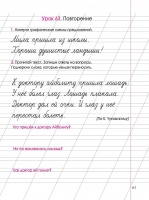 Урок 63. Повторение
1. Начерти графические схемы предложений.
Мила пришла из школы.
Хороши душистые ландыши!
2. Прочитай текст. Запиши ответы на вопросы.
Подчеркни слова, которые нельзя переносить.
К доктору Айболиту пришла лошадь.
У неё болел глаз. Лошадь плакала.
Доктор дал ей очки. И глаз у неё
перестал болеть.
(По К. Чуковскому)
Кто пришёл к доктору Айболиту?
На что жаловалась лошадь?
Как доктор ей помог?